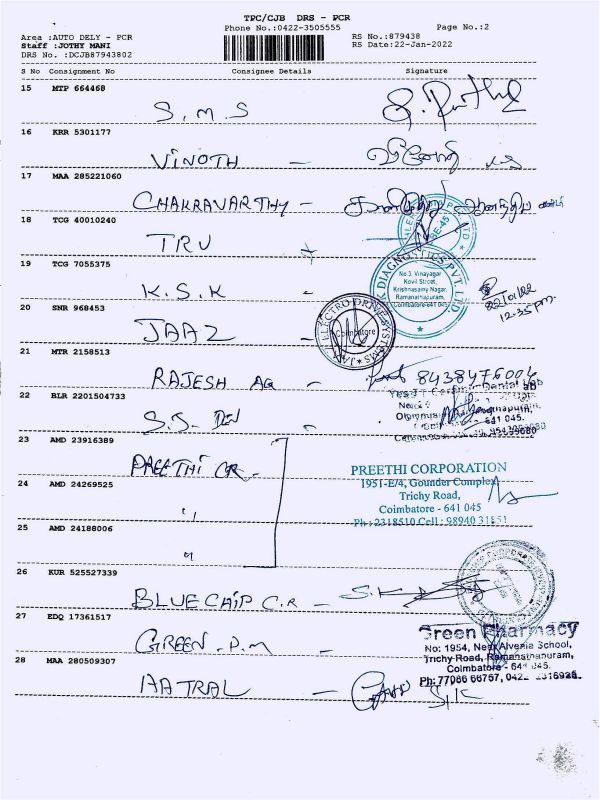 TPC/CJB DRS - PCR
Phone No.:0422-3505555 Page No.:2
Area :AUTO DELY - PCR RS No.:879438
Staff :JOTHY MANI RS Date:22-Jan-2022
DRS No. :DCJB87943802
S No Consignment No Consignee Details Signature
15 MTP 664468
S.M.S
16 KRR 5301177
VINOTH -
17 MAA 285221060
CHAKRAVARTHY -
18 TCG 40010240
TRU
19 TCG 7055375
K.S.K -
DIAGNOSTICS PVT. LTD
No.3, Vinayagar
Kovil Street,
Krishnasamy Nagar,
Ramanathapuram,
Coimbatore-641 045
22/01/22
12.35 pm.
20 SNR 968453
JAAZ -
ELECTRO DRIVE SYSTEMS
Coimbatore
21 MTR 2158513
RAJESH AG - 8438476004
22 BLR 2201504733
S.S.
23 AMD 23916389
PREETHI CR
24 AMD 24269525
"
PREETHI CORPORATION
1951-E/4, Gounder Complex,
Trichy Road,
Coimbatore - 641 045
Ph : 2318510 Cell : 98940 31851
25 AMD 24188006
"
26 KUR 525527339
BLUECHIP C.R -
27 EDQ 17361517
GREEN.P.M
Green Pharmacy
No: 1954, Near Alvernia School,
Trichy Road, Ramanathapuram,
Coimbatore - 641 045.
Ph: 77086 66757, 0422
28 MAA 280509307
AATRAL -